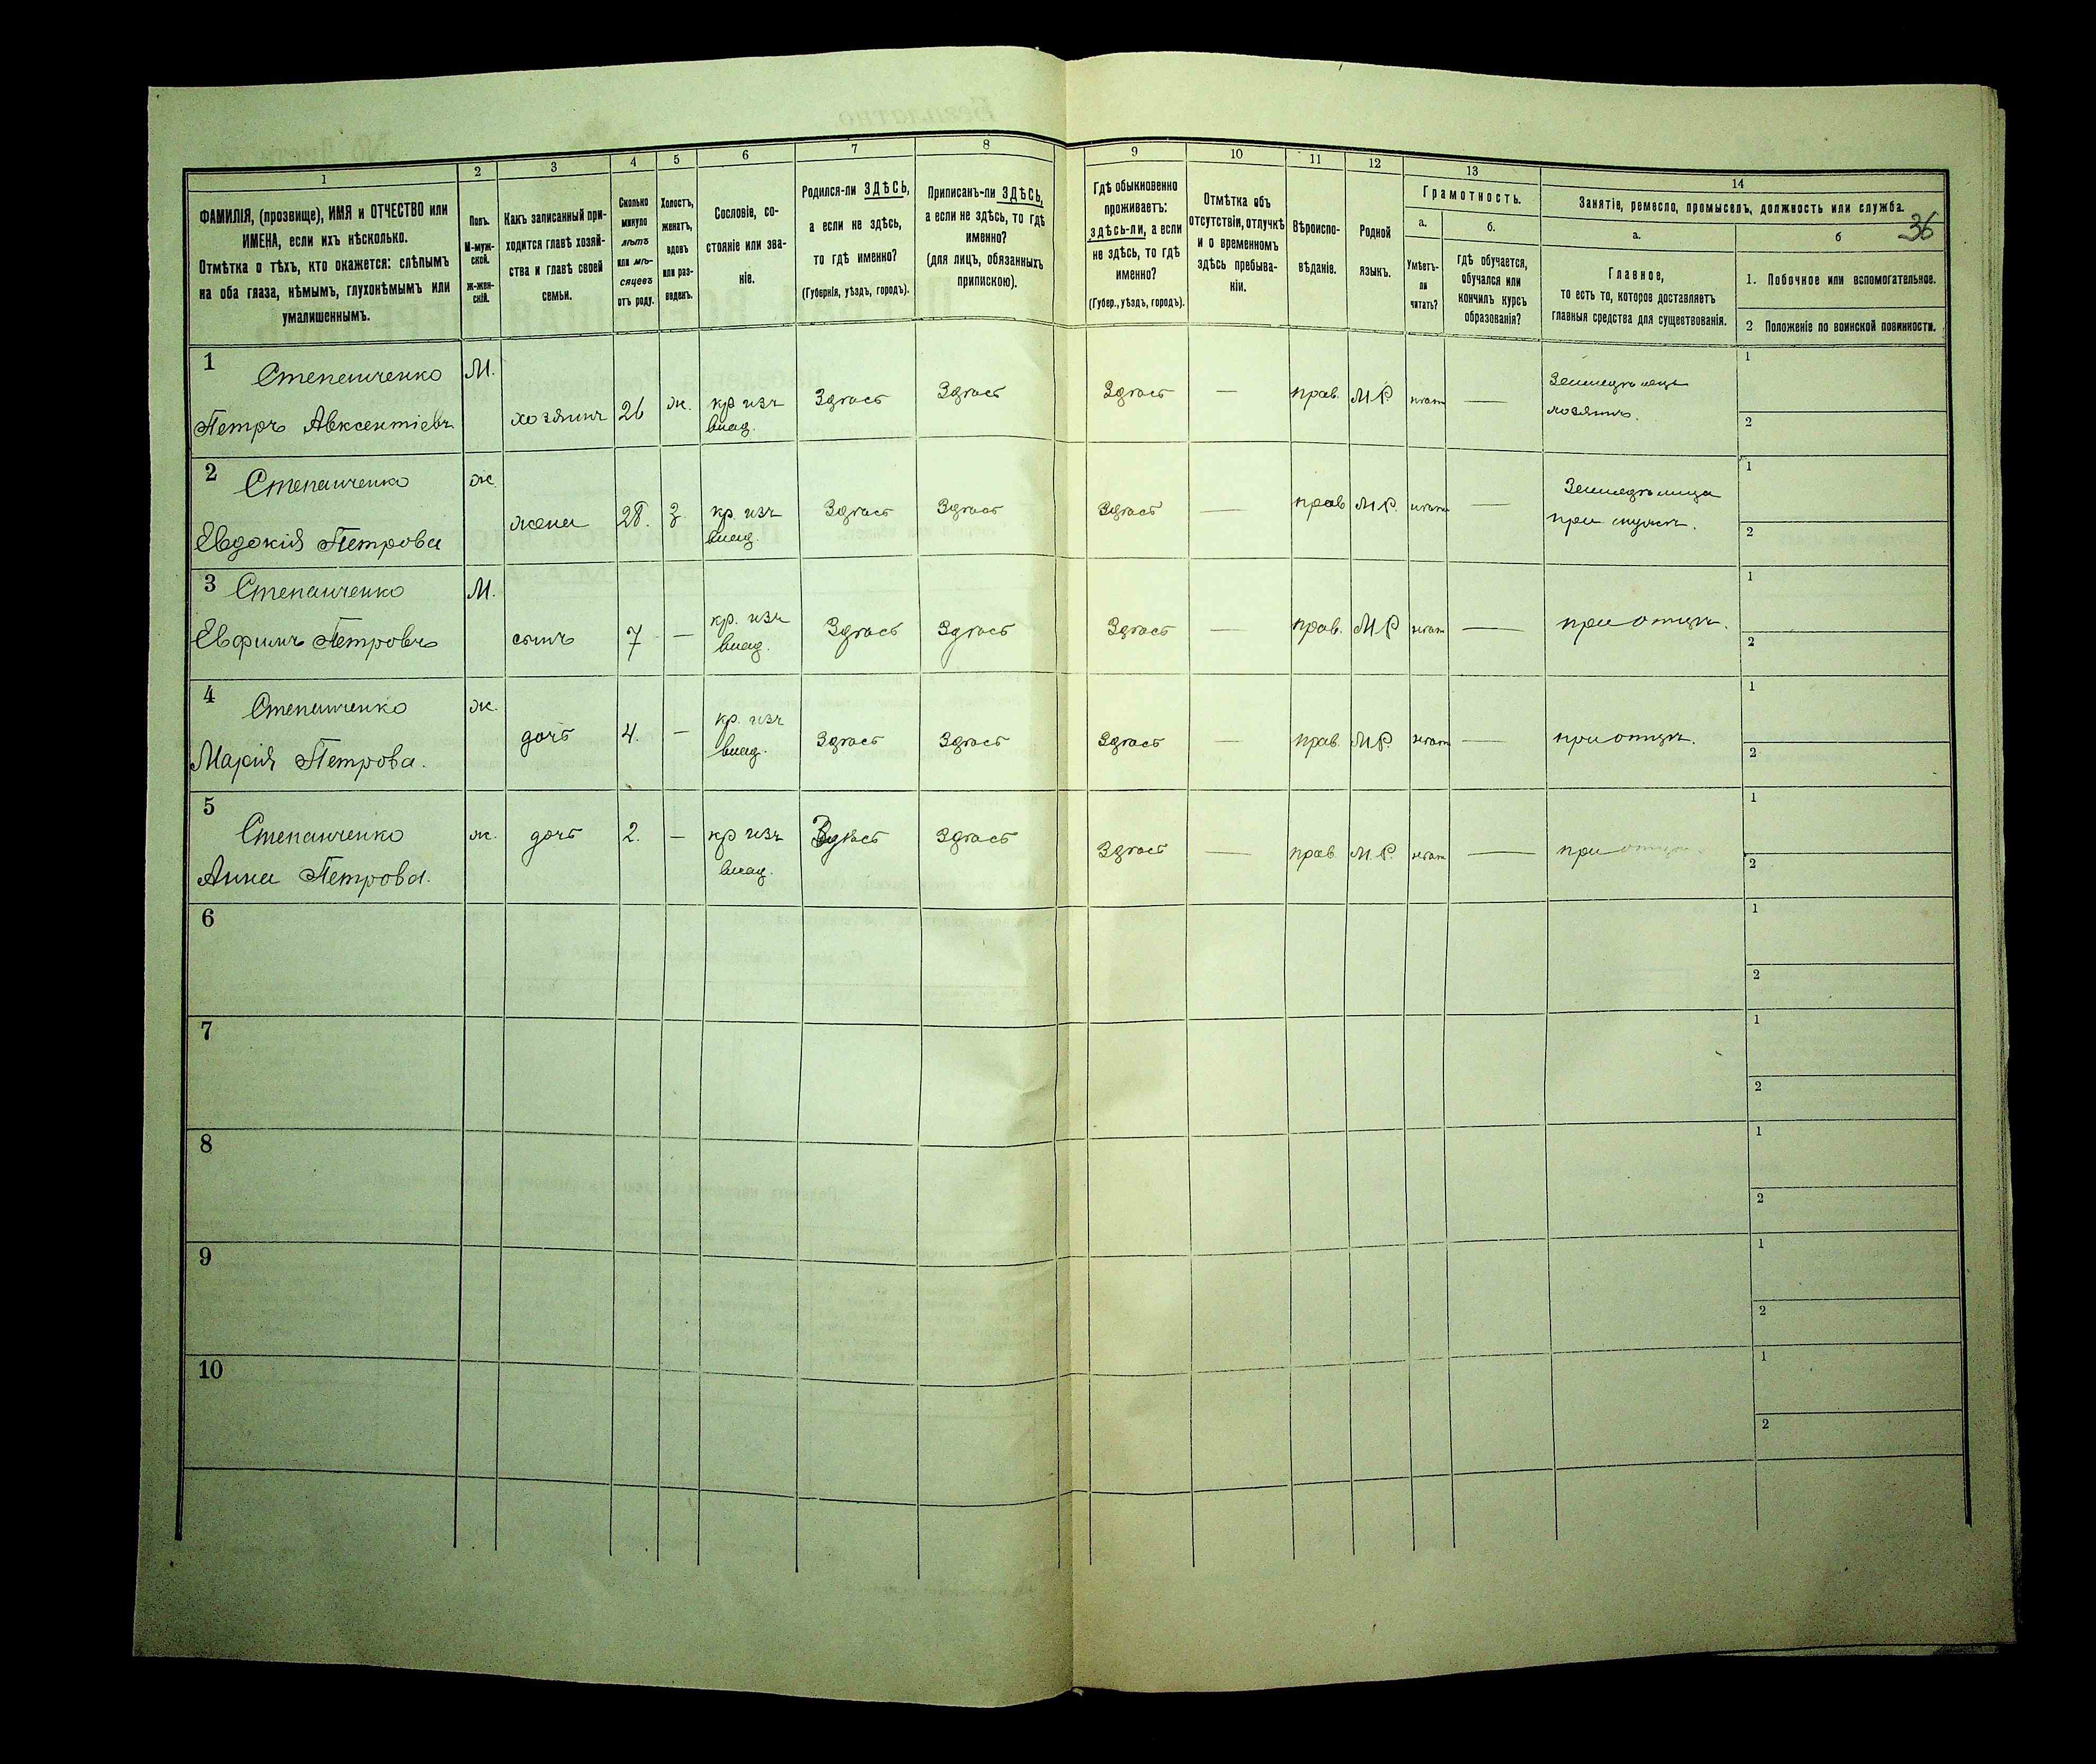 1
2
3
4
5
6
7
8
9
10
11
12
13
14
ФАМИЛІЯ, (прозвище), ИМЯ и ОТЧЕСТВО или
ИМЕНА, если ихъ нѣсколько.
Отмѣтка о тѣхъ, кто окажется: слѣпымъ
на оба глаза, нѣмымъ, глухонѣмымъ или
умалишеннымъ.
Полъ.
М-муж-
ской.
ж-жен-
скій.
Какъ записанный при-
ходится главѣ хозяй-
ства и главѣ своей
семьи.
Сколько
минуло
лѣтъ
или мѣ-
сяцевъ
отъ роду.
Холостъ,
женатъ,
вдовъ
или раз-
веденъ.
Сословіе, со-
стояніе или зва-
ніе.
Родился-ли ЗДѢСЬ,
а если не здѣсь,
то гдѣ именно?
(Губернія, уѣздъ, городъ).
Приписанъ-ли ЗДѢСЬ,
а если не здѣсь, то гдѣ
именно?
(для лицъ, обязанныхъ
припискою).
Гдѣ обыкновенно
проживаетъ:
здѣсь-ли, а если
не здѣсь, то гдѣ
именно?
(Губер., уѣздъ, городъ).
Отмѣтка объ
отсутствіи, отлучкѣ
и о временномъ
здѣсь пребыва-
ніи.
Вѣроиспо-
вѣданіе.
Родной
языкъ.
Грамотность.
а.
Умѣетъ-
ли
читать?
б.
гдѣ обучается,
обучался или
кончилъ курсъ
образованія?
Занятіе, ремесло, промыселъ, должность или служба.
36
а.
Главное,
то есть то, которое доставляетъ
главныя средства для существованія.
б
1. Побочное или вспомогательное.
2 Положеніе по воинской повинности.
1
Степанченко
Петръ Авксентіевъ
М.
хозяинъ
26
ж.
кр изъ
влад.
Здѣсь
Здѣсь
Здѣсь
—
прав.
М.Р.
нѣтъ
—
Земледѣлецъ
хозяинъ.
1
2
2
Степанченко
Евдокія Петрова
ж.
жена
28.
З
кр. изъ
влад.
Здѣсь
Здѣсь
Здѣсь
—
прав
М.Р.
нѣтъ
—
Земледѣлица
при мужѣ.
1
2
3
Степанченко
Евфимъ Петровъ
М.
сынъ
7
—
кр. изъ
влад.
Здѣсь
Здѣсь
Здѣсь
—
прав.
М.Р
нѣтъ
—
при отцѣ.
1
2
4
Степанченко
Марія Петрова.
ж.
дочь
4.
—
кр. изъ
влад.
Здѣсь
Здѣсь
Здѣсь
—
прав.
М.Р.
нѣтъ
—
при отцѣ.
1
2
5
Степанченко
Анна Петрова.
ж.
дочь
2.
—
кр изъ
влад.
Здѣсь
Здѣсь
Здѣсь
—
прав
М.Р.
нѣтъ
—
при отцѣ.
1
2
6
1
2
7
1
2
8
1
2
9
1
2
10
1
2